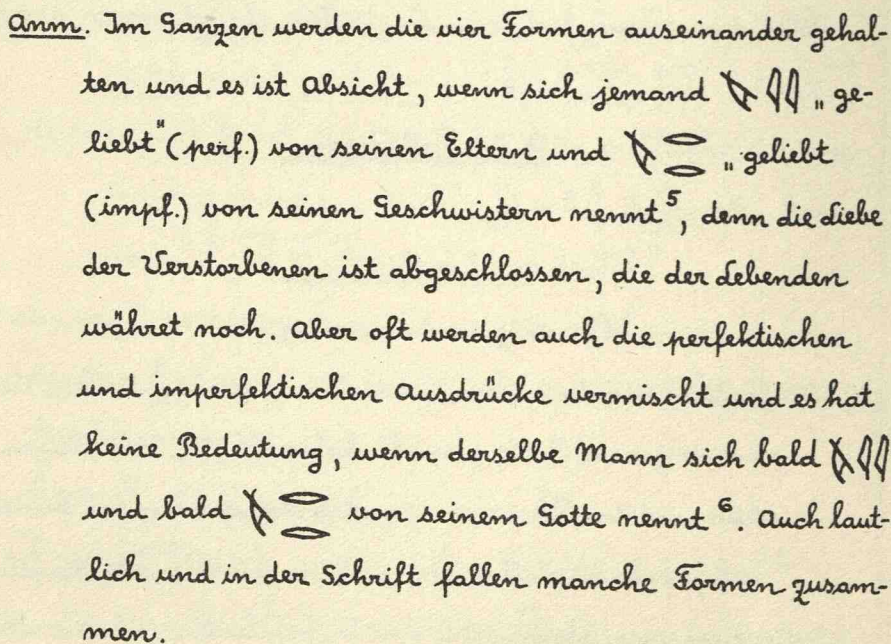 Anm. Im Ganzen werden die vier Formen auseinander gehal-
ten und es ist Absicht, wenn sich jemand 𓌻𓇌 „ge-
liebt“ (perf.) von seinen Eltern und 𓌻𓂋𓂋 „geliebt
(impf.) von seinen Geschwistern nennt⁵, denn die Liebe
der Verstorbenen ist abgeschlossen, die der Lebenden
währet noch. Aber oft werden auch die perfektischen
und imperfektischen Ausdrücke vermischt und es hat
keine Bedeutung, wenn derselbe Mann sich bald 𓌻𓇌
und bald 𓌻𓂋𓂋 von seinem Gotte nennt⁶. Auch laut-
lich und in der Schrift fallen manche Formen zusam-
men.